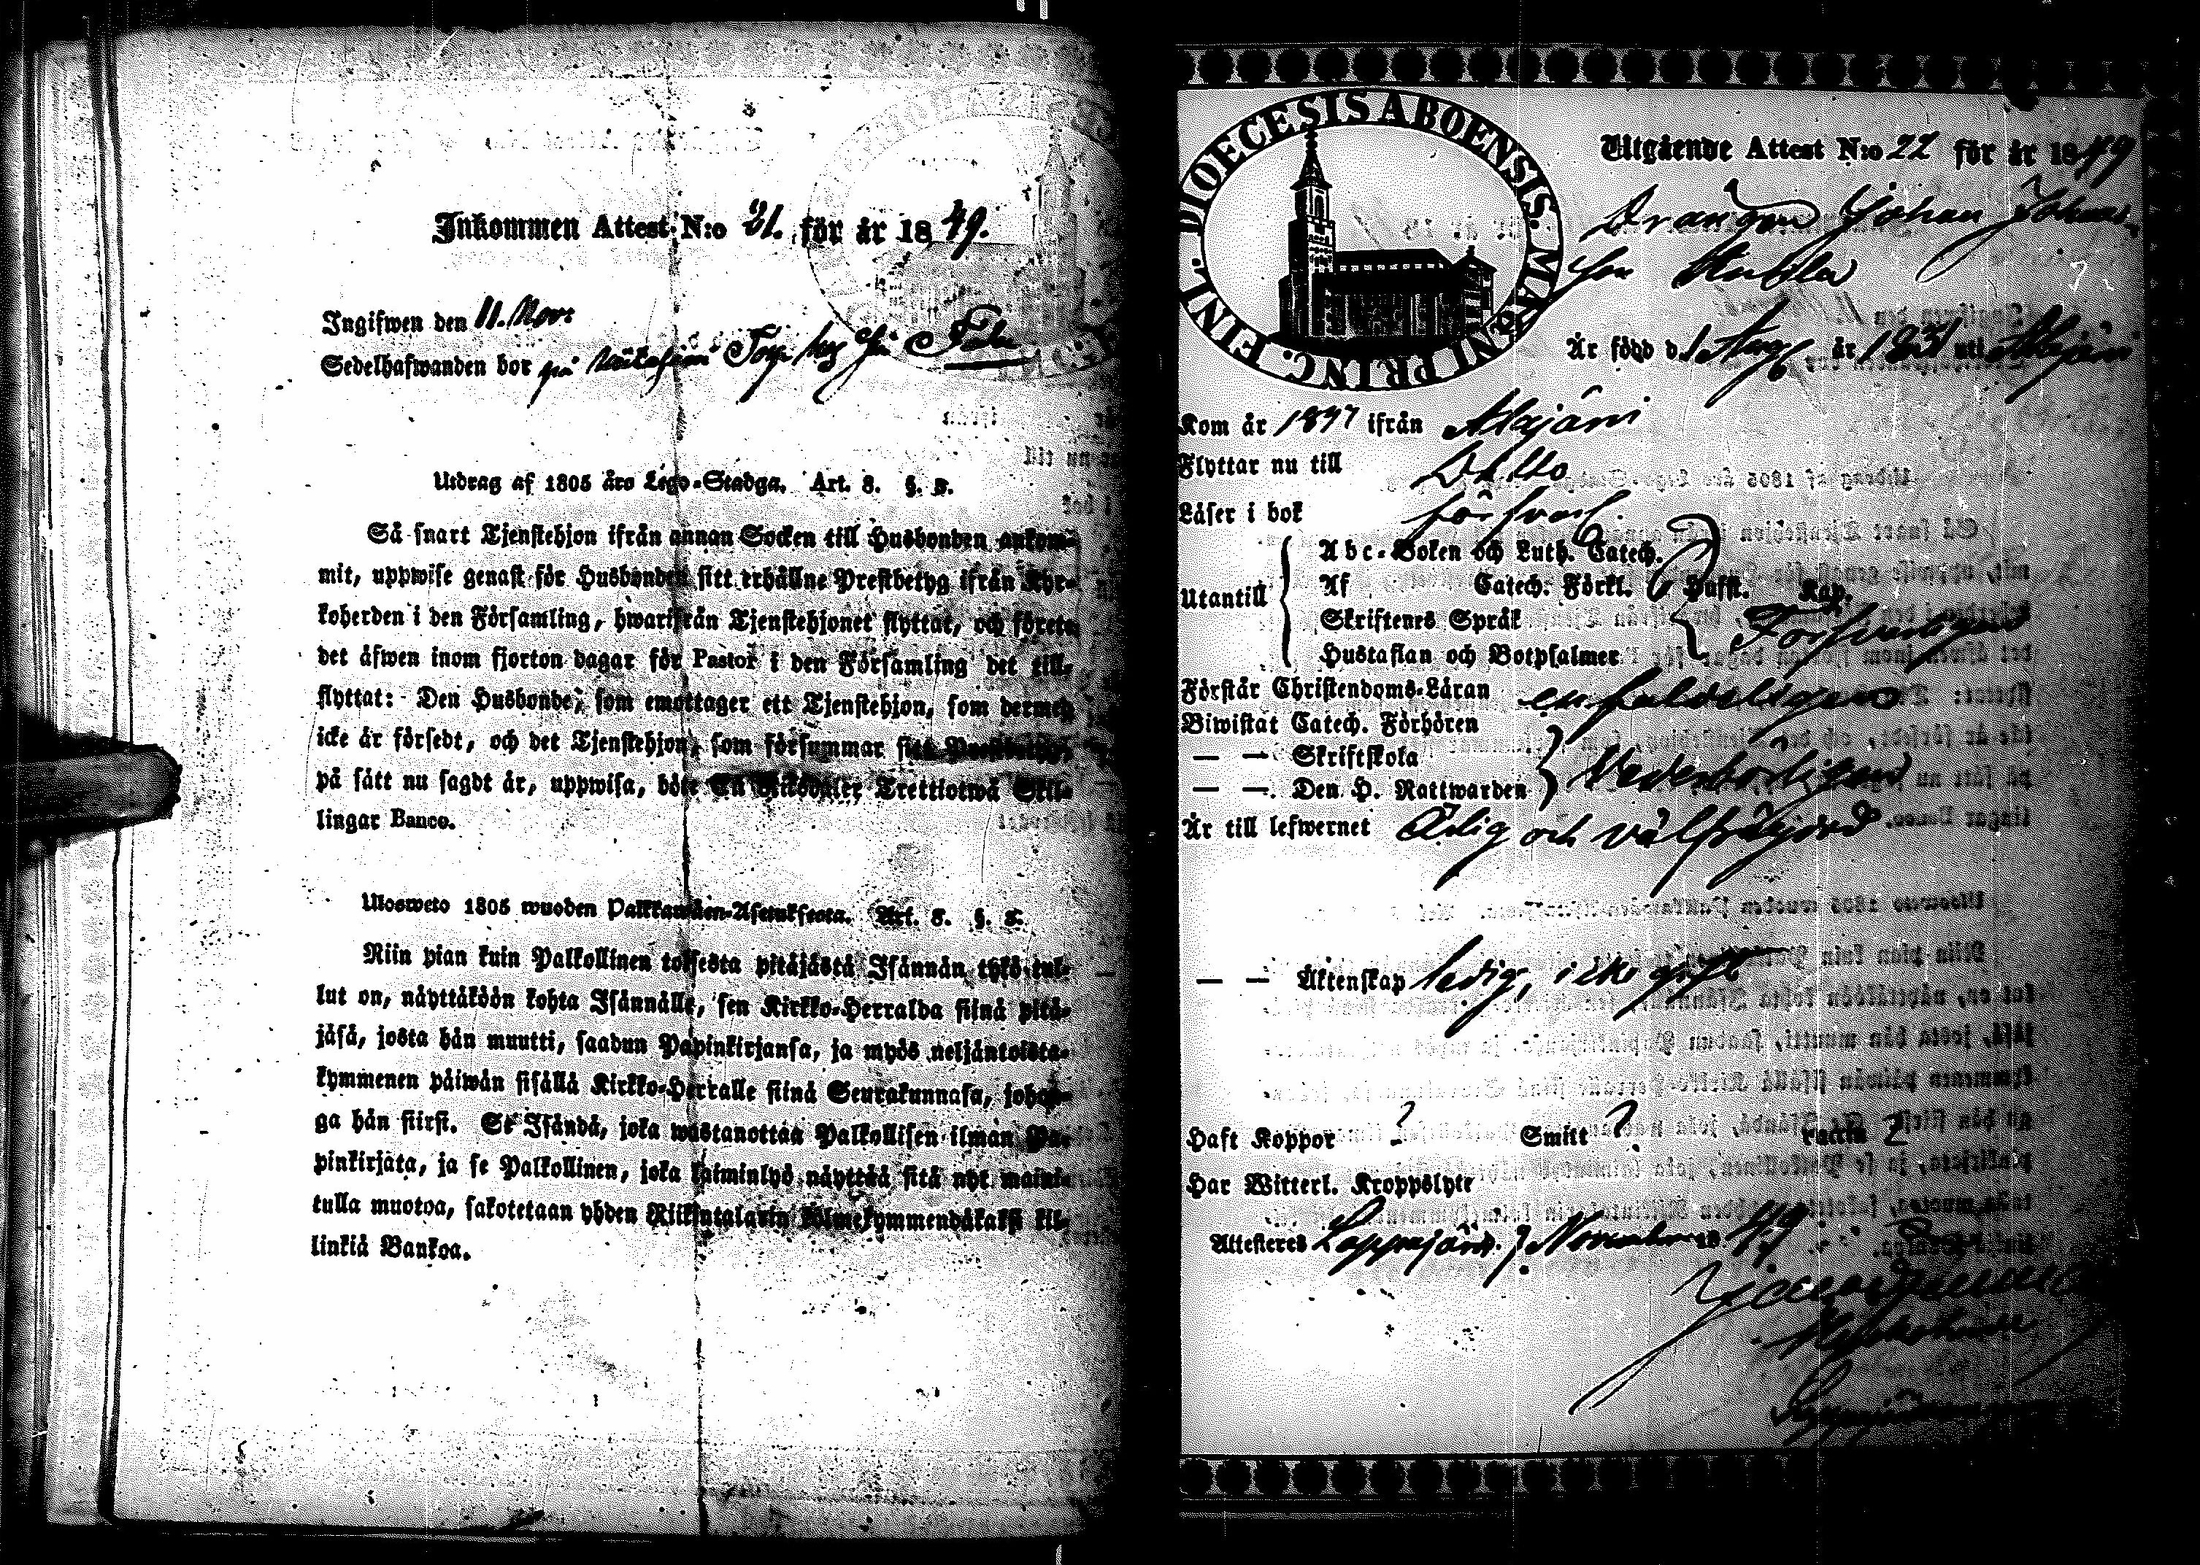 Inkommen Attest N:o 31. för år 1849.
Ingifwen den 11. Nov:
Sedelhafwanden bor på
Utdrag af 1805 års Lego-Stadga. Art. 8. §. 3.
Så snart Tjenstehjon ifrån annan Socken till Husbonden ankom-
mit, uppwise genast för Husbonden sitt erhållne Prestbetyg ifrån Kyr-
koherden i den Församling, hwarifrån Tjenstehjonet flyttat, och förete
det äfwen inom fjorton dagar för Pastor i den Församling det till-
flyttat: Den Husbonde, som emottager ett Tjenstehjon, som dermed
icke är försedt, och det Tjenstehjon, som försummar sitt Prestbetyg,
på sätt nu sagdt är, uppwisa, böte En Riksdaler Trettiotwå Skil-
lingar Banco.
Ulosweto 1805 wuoden Palkkawäen-Asetuksesta. Art. 8. §. 3.
Niin pian kuin Palkollinen toisesta pitäjästä Isännän tykö tul-
lut on, näyttäköön kohta Isännälle, sen Kirkko-Herralda siinä pitä-
jäsä, josta hän muutti, saadun Papinkirjansa, ja myös neljäntoista-
kymmenen päiwän sisällä Kirkko-Herralle siinä Seurakunnasa, johon-
ga hän siirsi. Se Isändä, joka wastanottaa Palkollisen ilman Pa-
pinkirjata, ja se Palkollinen, joka laiminlyö näyttää sitä nyt maini-
tulla muotoa, sakotetaan yhden Riiksintalarin kolmekymmendäkaksi kil-
linkiä Bankoa.
DIOECESIS ABOENSIS. MAGNI PRINC. FINL.
Utgående Attest N:o 22 för år 1849
Drängen Johan Johans
son
Är född d. 1 Aug. år 1831 uti Alajärvi
Kom år 1847 ifrån Alajärvi
Flyttar nu till Ditto
Läser i bok försvarl.
Utantill
Abc-Boken och Luth. Catech.
Af Catech. Förkl. Hufst. Kap.
Skriftenes Språk Försvarligen
Hustaflan och Botpsalmer
Förstår Christendoms-Läran enfaldeligen
Biwistat Catech. Förhören
— — Skriftskola
— — Den H. Nattwarden Vederbörligen
Är till lefwernet Ärlig och välfräjdad
— — Äktenskap ledig, icke gift
Haft Koppor ? Smitt ? Vaccin ?
Har Witterl. Kroppslyte
Attesteres Lappajärvi 7 November 1849